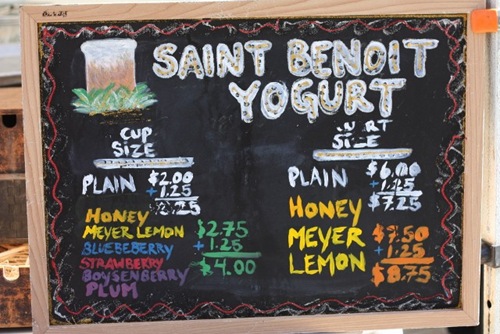 SAINT BENOIT
YOGURT
CUP
SIZE
PLAIN $2.00
+1.25
HONEY
MEYER LEMON
BLUEBEBERRY
STRAWBERRY
BOYSENBERRY
PLUM
$2.75
+1.25
$4.00
SIZE
PLAIN $6.00
+1.25
$7.25
HONEY
MEYER
LEMON
$7.50
+1.25
$8.75